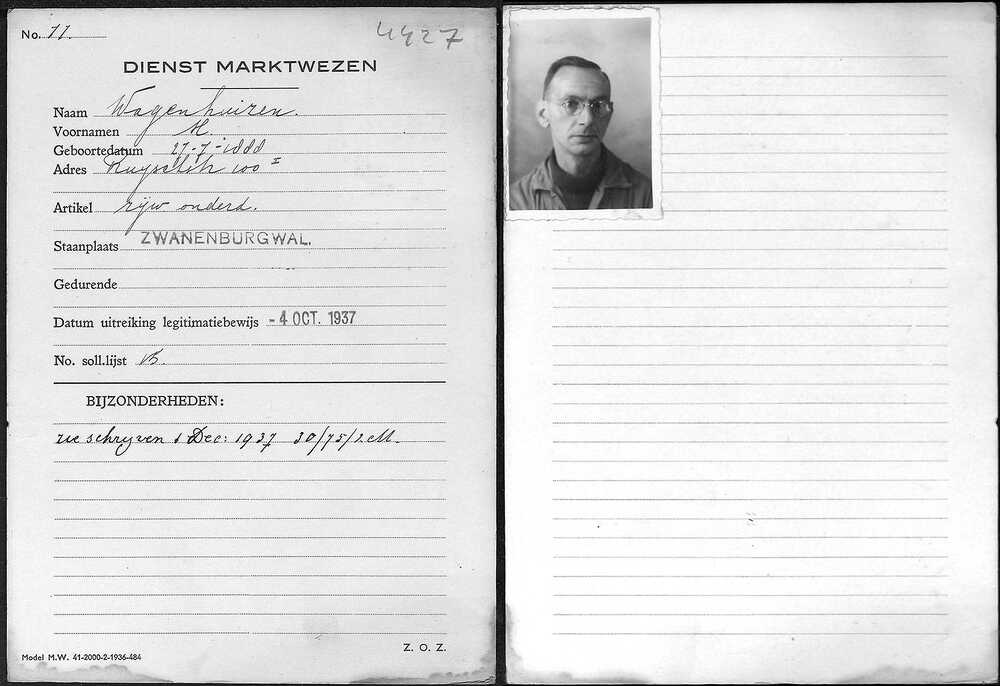 No. 11.
4427
DIENST MARKTWEZEN
Naam Wagenhuizen.
Voornamen M.
Geboortedatum 27-7-1888
Adres 100 II
Artikel rijw onderd.
Staanplaats ZWANENBURGWAL.
Gedurende
Datum uitreiking legitimatiebewijs -4 OCT. 1937
No. soll.lijst
BIJZONDERHEDEN:
zie schrijven 1 Dec: 1937 30/75/2 M.
Model M.W. 41-2000-2-1936-484
Z. O. Z.